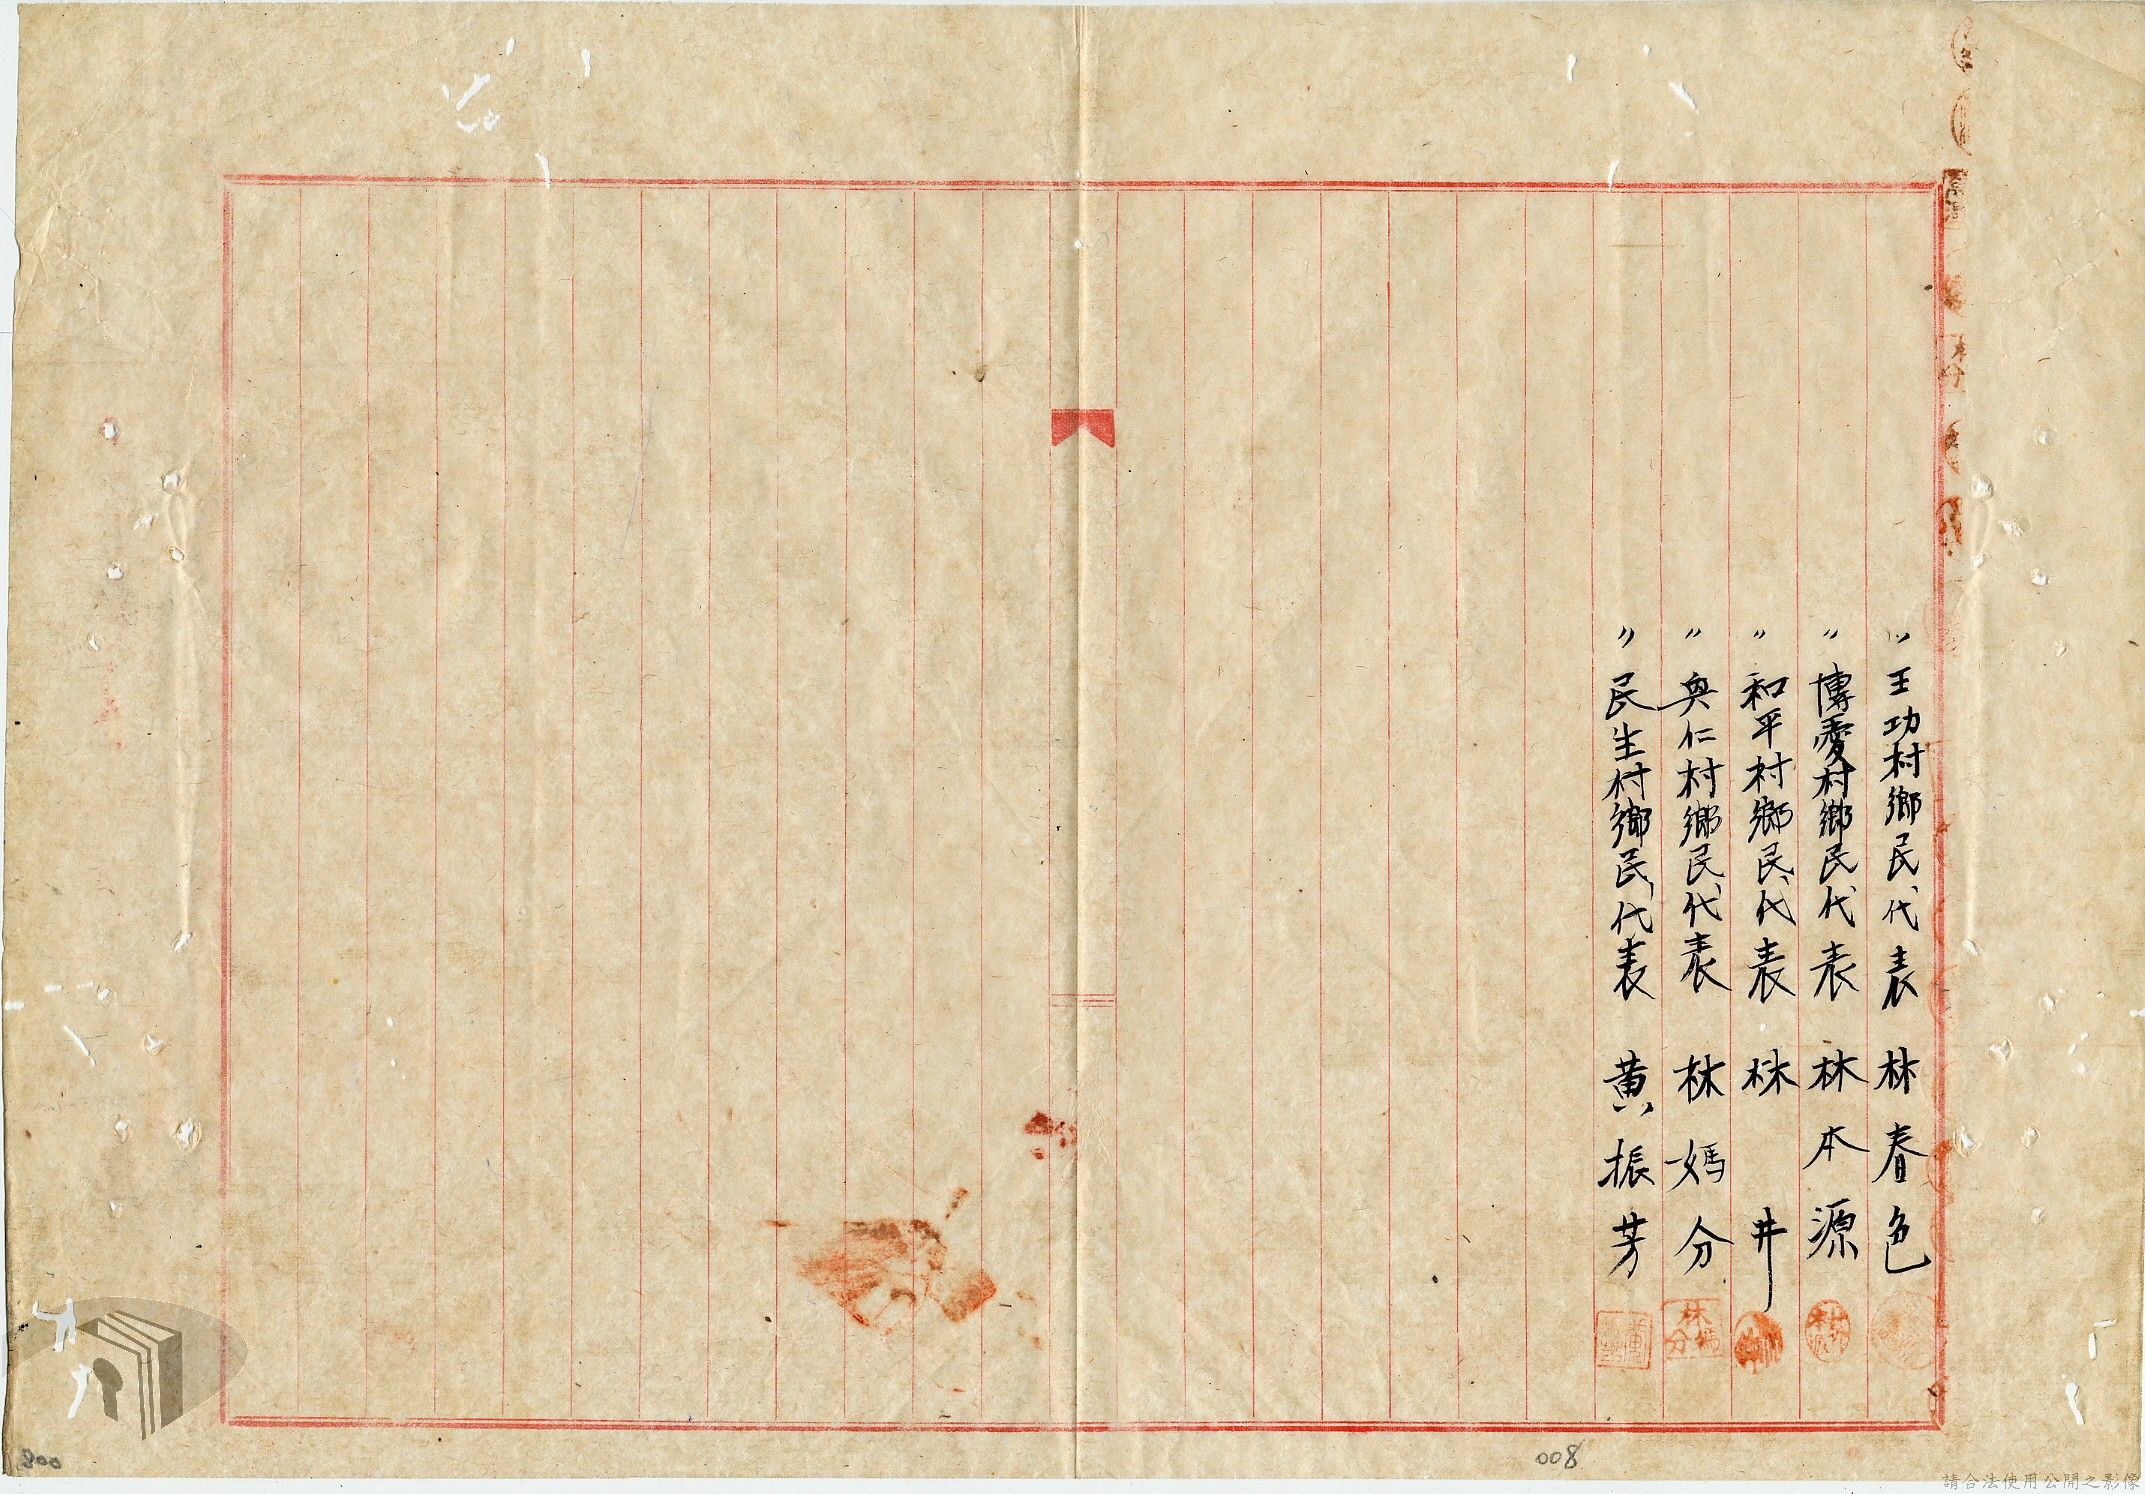 〃王功村鄉民代表 林春色
〃博愛村鄉民代表 林本源
〃和平村鄉民代表 林井
〃與仁村鄉民代表 林媽分
〃民生村鄉民代表 黃振芳
林媽分
008
800
請合法使用公開之影像